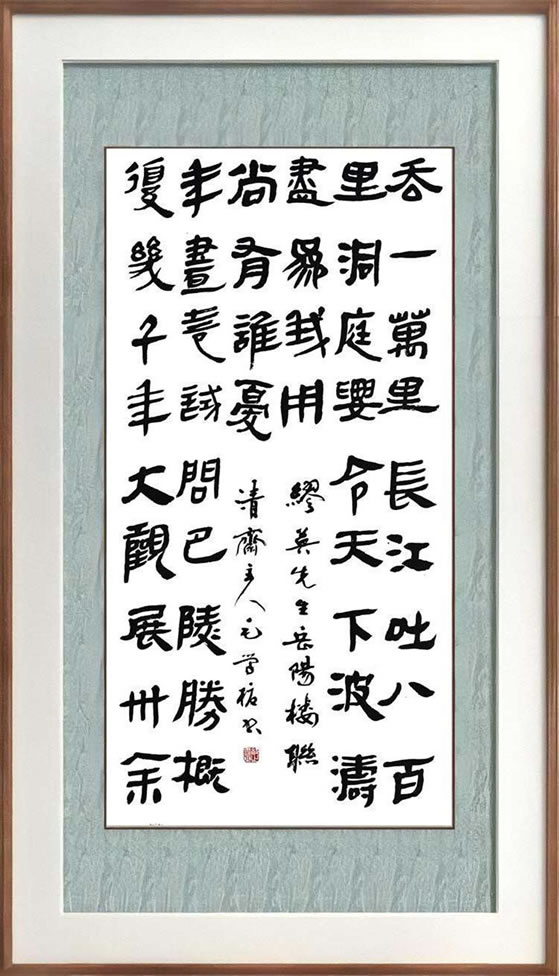 吞一萬里長江吐八百
里洞庭要令天下波濤
盡爲我用
復幾千年大觀展卅余
年畫卷試問巴陵勝概
尚有誰憂
繆英先生岳陽樓聯
清齋主人毛學書